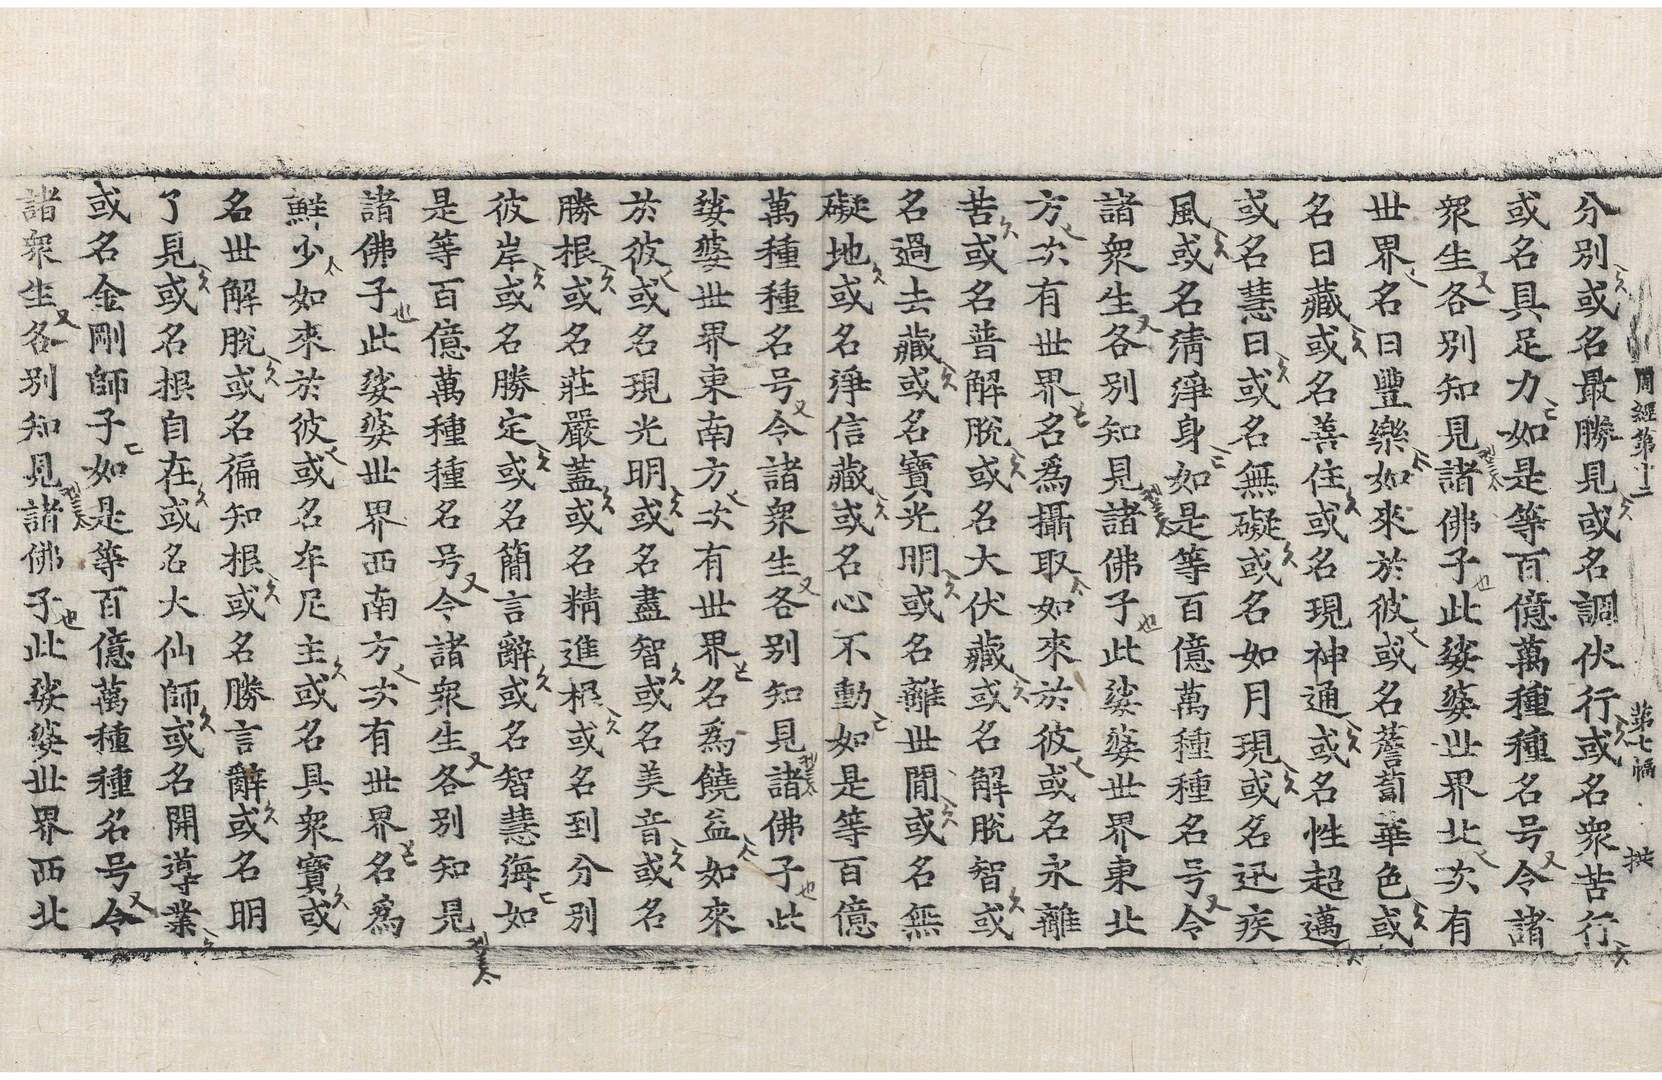 周經第十二 第七幅 拱
分別或名最勝見或名調伏行或名衆苦行
或名具足力如是等百億萬種種名号令諸
衆生各別知見諸佛子此娑婆世界北次有
世界名曰豐樂如來於彼或名薝蔔華色或
名日藏或名善住或名現神通或名性超邁
或名慧日或名無礙或名如月現或名迅疾
風或名清淨身如是等百億萬種種名号令
諸衆生各別知見諸佛子此娑婆世界東北
方次有世界名爲攝取如來於彼或名永離
苦或名普解脫或名大伏藏或名解脫智或
名過去藏或名寶光明或名離世間或名無
礙地或名淨信藏或名心不動如是等百億
萬種種名号令諸衆生各別知見諸佛子此
娑婆世界東南方次有世界名爲饒益如來
於彼或名現光明或名盡智或名美音或名
勝根或名莊嚴蓋或名精進根或名到分別
彼岸或名勝定或名簡言辭或名智慧海如
是等百億萬種種名号令諸衆生各別知見
諸佛子此娑婆世界西南方次有世界名爲
鮮少如來於彼或名牟尼主或名具衆寶或
名世解脫或名徧知根或名勝言辭或名明
了見或名根自在或名大仙師或名開導業
或名金剛師子如是等百億萬種種名号令
諸衆生各別知見諸佛子此娑婆世界西北